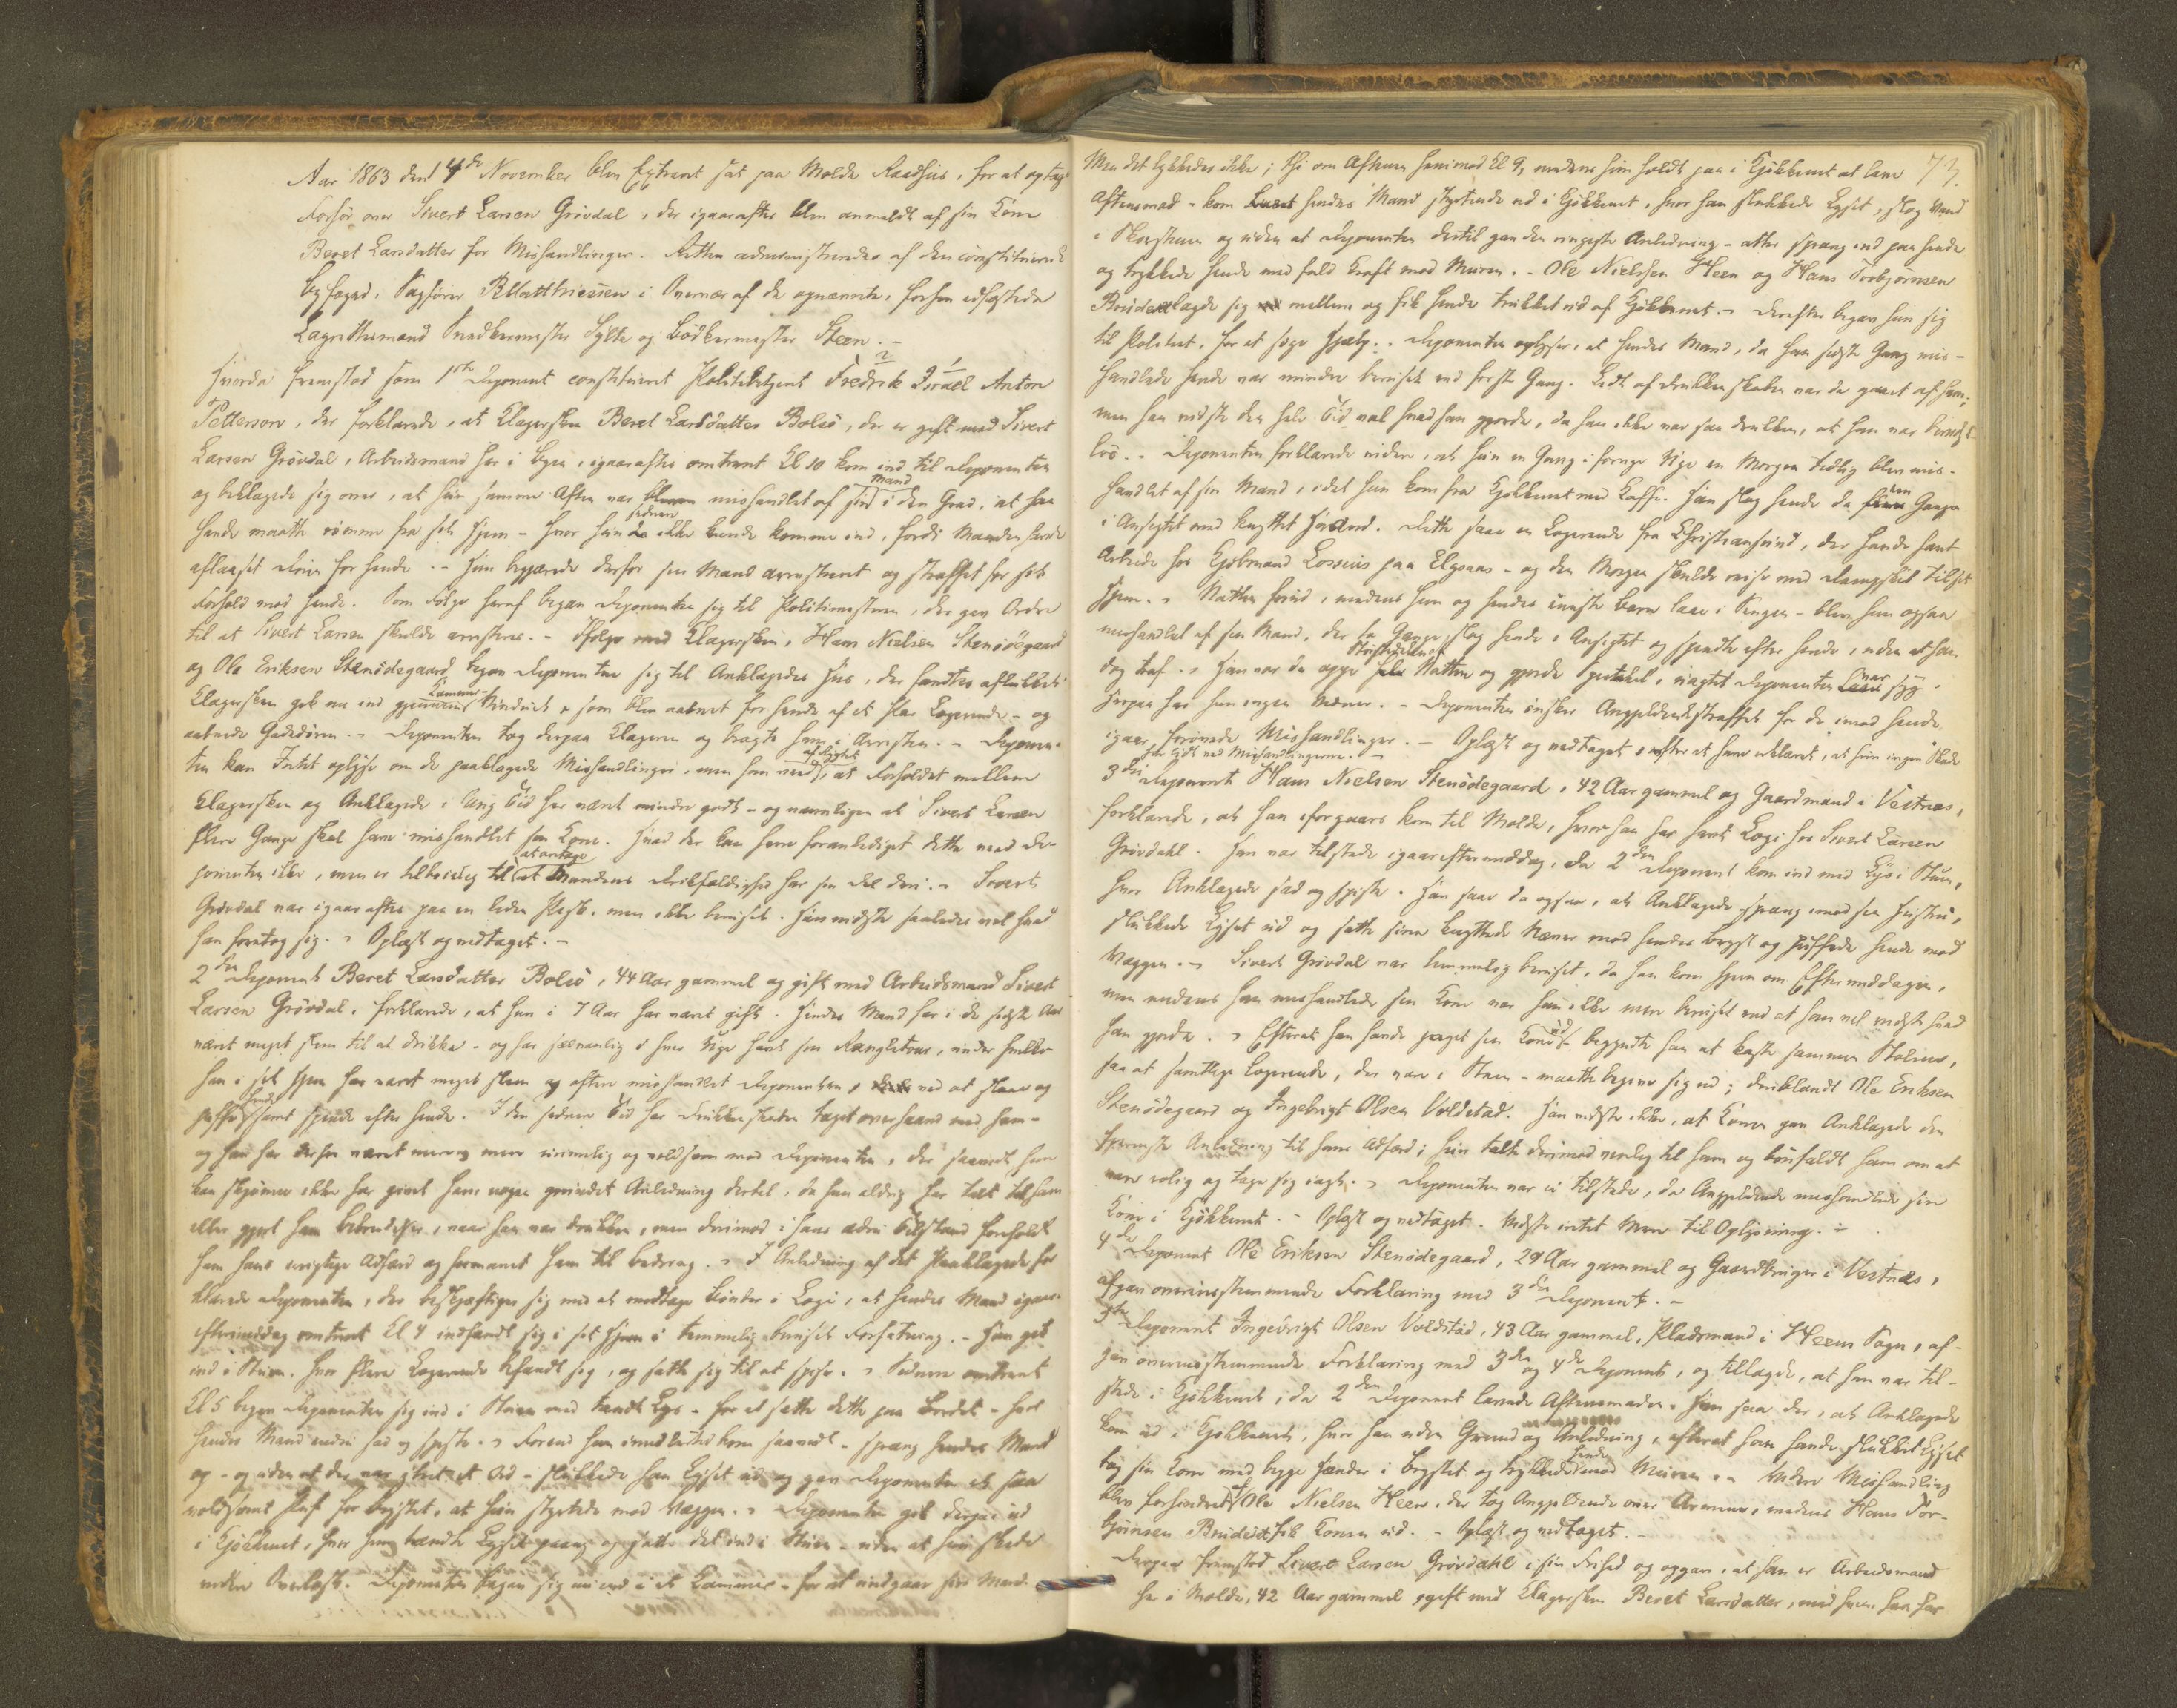 Aar 1863 den 4de November blev Extraret sat paa Molde Raadhus, for at optage
Forhør over Sivert Larsen Grövdal, der igaaraftes blev anmeldt af sin Kone
Beret Larsdatter for Mishandlinger. Retten administreredes af den constituerede
Byfoged, Sagfører Matthiessen i Overvær af de opnævnte, forhen edfæstede
Lagrettesmænd Snedkermester Sylte og Bødkermester Steen. –
Hvorda fremstod som 1ste Deponent constitueret Politibetjent Fredrik Israel Anton
Petterson, der forklarede, at Klagersken Beret Larsdatter Bolsö, der er gift med Sivert
Larsen Grövdal, Arbeidsmand her i Byen, igaaraftes omtrent Kl 10 kom ind til Deponenten
og beklagede sig over, at hun samme Aften var bleven mishandlet af sin Mand i den Grad, at hun
havde maattet rømme fra sit Hjem – hvor hun siden ikke kunde komme ind, fordi Manden havde
aflaaset Døren for hende. – Hun begjærede derfor sin Mand arresteret og straffet for sit
Forhold mod hende. Som Følge heraf begav Deponenten sig til Politimesteren, der gav Ordre
til at Sivert Larsen skulde arresteres. – Ifølge med Klagersken, Hans Nielsen Stenödegaard
og Ole Eriksen Stenödegaard begav Deponenten sig til Anklagedes Hus, der fandtes aflukket.
Klagersken gik nu ind gjennem Kammer-Vinduet, som blev aabnet for hende af et Par Logerende – og
aabnede Gadedøren. – Deponenten tog derpaa Klageren og bragte ham i Arresten. – Deponen-
ten kan Intet oplyse om de paaklagede Mishandlinger, men han veed af Rygte, at Forholdet mellem
Klagersken og Anklagede i lang Tid har været mindre godt – og navnligen at Sivert Larsen
flere Gange skal have mishandlet sin Kone. Hvad der kan have foranlediget dette veed De-
ponenten ikke, men er tilbøielig til at antage at Mandens Drikfældighed har sin Del deri. – Sivert
Grövdal var igaaraftes paa en liden Pidsk, men ikke beruset. Han vidste saaledes vel hvad
han foretog sig. – Oplæst og vedtaget. –
2den Deponent Beret Larsdatter Bolsö, 44 Aar gammel og gift med Arbeidsmand Sivert
Larsen Grövdal, forklarede, at hun i 7 Aar har været gift. Hendes Mand har i de sidste Aar
været meget slem til at drikke – og har jævnlig i hver Uge havt sin Rangletour, under hvilke
han i sit Hjem har været meget slem og oftere mishandlet Deponenten, ved at slaae og
puffe hende samt spænde efter hende. I den senere Tid har Drikkeskaben taget overhaand med ham –
og han har derfor været mere og mere urimelig og voldsom mod Deponenten, der saavidt hun
kan skjønne ikke har givet ham nogen grundet Anledning dertil, da hun aldrig har talt til ham
eller gjort ham Bebreidelser, naar han var drukken, men derimod i hans ædru Tilstand foreholdt
ham hans urigtige Adfærd og formanet ham til Bedring. – I Anledning af det Paaklagede for-
klarede Deponenten, der beskjæftiger sig med at modtage Bønder i Logi, at hendes Mand igaar-
eftermiddag omtrent Kl 4 indfandt sig i sit Hjem i temmelig beruset Forfatning. – Han gik
ind i Stuen, hvor flere Logerende befandt sig, og satte sig til at spise. – Siden omtrent
Kl 5 begav Deponenten sig ind i Stuen med tændt Lys – for at sætte dette paa Bordet – hvor
hendes Mand endnu sad og spiste. – Forend hun imidlertid kom saavidt – sprang hendes Mand
op – og uden at der var ytret et Ord – slukkede han Lyset ud og gav Deponenten et saa
voldsomt Puf for Brystet, at hun styrtede mod Væggen. – Deponenten gik derpaa ud
i Kjökkenet, hvor hun tændte Lyset paany og satte det ind i Stuen – uden at hun skede
videre Overlast. Deponenten begav sig nu ind i et Kammer – for at undgaae sin Mand.
73.
Men det lykkedes ikke; thi om Aftenen henimod Kl 9, medens hun holdt paa i Kjökkenet at lave
Aftensmad – kom hendes Mand styrtende ud i Kjökkenet, hvor han slukkede Lyset, slog Vand
i Skorstenen og uden at Deponenten dertil gav den ringeste Anledning – atter sprang ind paa hende
og trykkede hende med fuld Kraft mod Muren. – Ole Nielsen Heen og Hans Torbjörnsen
Brudeset lagde sig mellem og fik hende trukket ud af Kjökkenet. – Derefter begav hun sig
til Politiet, for at søge Hjælp. – Deponenten oplyser, at hendes Mand, da han sidste Gang mis-
handlede hende var mindre beruset end første Gang. Lidt af Drukkenskaben var da gaaet af ham;
men han vidste den hele Tid vel hvad han gjorde, da han ikke var saa drukken, at han var bevidst-
løs. – Deponenten forklarede videre, at hun en Gang i forrige Uge en Morgen tidlig blev mis-
handlet af sin Mand, idet hun kom fra Kjökkenet med Kaffe. Han slog hende da Gange
i Ansigtet med knyttet Haand. Dette saae en Logerende fra Christianssund, der havde havt
Arbeide hos Kjøbmand Lossius paa Elgsaas – og den Morgen skulde reise med Dampskib til sit
Hjem. – Natten forud, medens hun og hendes eneste Barn laae i Sengen – blev hun ogsaa
mishandlet af sin Mand, der Gange slog hende i Ansigtet og spændte efter hende, uden at han
dog traf. – Han var da oppe Størstedelen af Natten og gjorde Spektakel, uagtet Deponenten var syg.
Herpaa har hun ingen Vidner. – Deponenten ønsker Angjeldende straffet for de imod hende
igaar forøvede Mishandlinger. – Oplæst og vedtaget, efter at have erklæret, at hun ingen Skade
har lidt ved Mishandlingerne. –
3die Deponent Hans Nielsen Stenödegaard, 42 Aar gammel og Gaardmand i Vestnæs,
forklarede, at han iforgaars kom til Molde, hvor han har havt Logi hos Sivert Larsen
Grövdahl. Han var tilstede igaareftermiddag, da 2den Deponent kom ind med Lys i Stuen,
hvor Anklagede sad og spiste. Han saae da ogsaa, at Anklagede sprang imod sin Hustru,
slukkede Lyset ud og satte sine knyttede Næver mod hendes Bryst og puffede hende mod
Væggen. – Sivert Grövdal var temmelig beruset, da han kom hjem om Eftermiddagen,
men medens han mishandlede sin Kone var han ikke mere beruset end at han vel vidste hvad
han gjorde. – Efterat han havde jaget sin Kone ud begyndte han at kaste sammen Stolene,
saa at samtlige Logerende, der vare i Stuen – maatte begive sig ud; deriblandt Ole Eriksen
Stenödegaard og Ingebrigt Olsen Voldstad. Han vidste ikke, at Konen gav Anklagede den
fjerneste Anledning til hans Adfærd; hun talte derimod venlig til ham og bønfaldt ham om at
være rolig og tage sig iagt. – Deponenten var ei tilstede, da Angjeldende mishandlede sin
Kone i Kjökkenet. – Oplæst og vedtaget. Vidste intet Mere til Oplysning. –
4de Deponent Ole Eriksen Stenödegaard, 29 Aar gammel og Gaardbruger i Vestnæs,
afgav overensstemmende Forklaring med 3die Deponent. –
5te Deponent Ingebrigt Olsen Voldstad, 43 Aar gammel, Pladsmand i Heens Sogn, af-
gav overensstemmende Forklaring med 3die og 4de Deponent, og tillagde, at han var til-
stede i Kjökkenet, da 2den Deponent lavede Aftensmaden. Han saa der, at Anklagede
kom ud i Kjökkenet, hvor han uden Grund og Anledning, efterat han havde slukket Lyset
tog sin Kone med begge Hænder i Brystet og trykkede hende mod Muren. – Videre Mishandling
blev forhindret af Ole Nielsen Heen, der tog Angjeldende over Armene, medens Hans Tor-
björnsen Brudeset fik Konen ud. – Oplæst og vedtaget. –
Derpaa fremstod Sivert Larsen Grövdahl i sin Frihed og opgav, at han er Arbeidsmand
her i Molde, 42 Aar gammel, gift med Klagersken Beret Larsdatter, med hvem han har